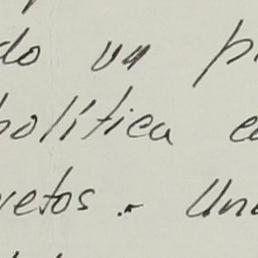 do un p
política e
retos. Una